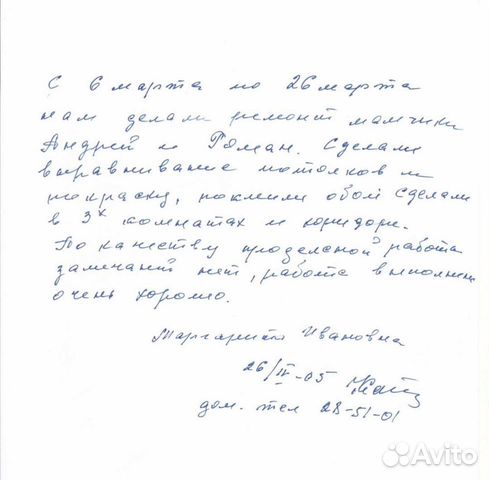 С 6 марта по 26 марта
нам делали ремонт мальчики
Андрей и Роман. Сделали
выравнивание потолков и
покраску, поклили обои сделали
в 3х комнатах и коридоре.
По качеству проделаной работа
замечаний нет, работа выполнен
очень хорошо.
Маргарита Ивановна
26/IV-05
дом. тел 28-51-01
Avito